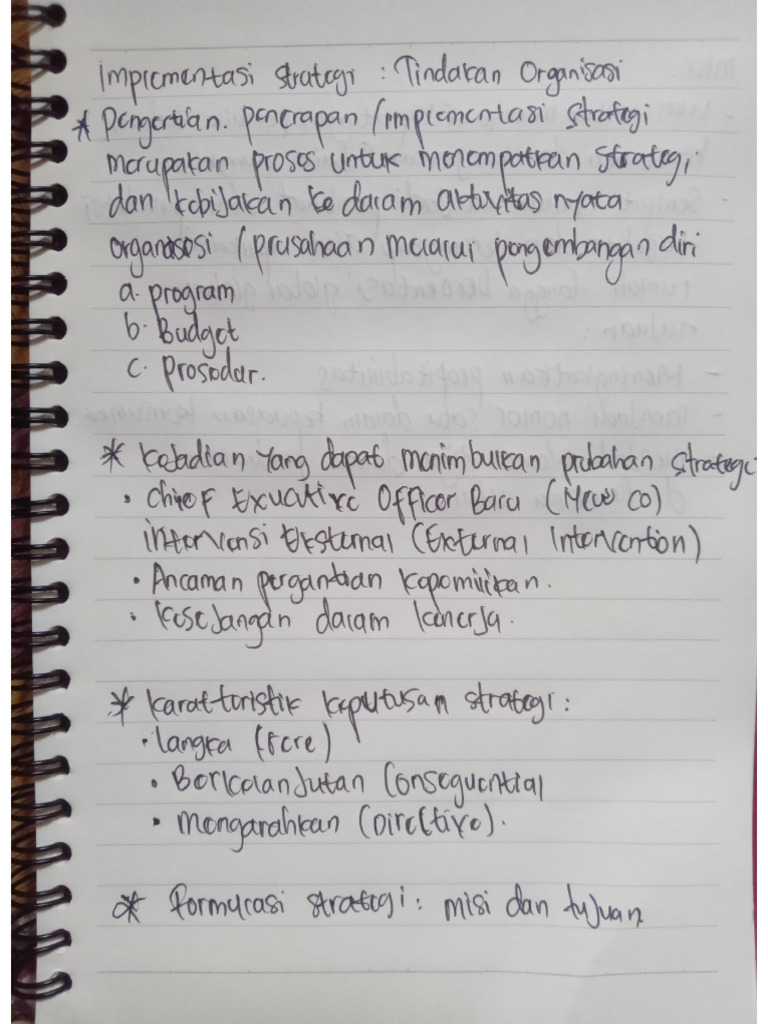 Implementasi Strategi : Tindakan Organisasi
* Pengertian. Penerapan / implementasi strategi
merupakan proses untuk menempatkan strategi
dan kebijakan ke dalam aktivitas nyata
organasosi / prusahaan melalui pengembangan diri
a. program
b. Budget
c. Prosedur.
* Kejadian yang dapat menimbulkan prubahan strategi
• Chief Exucative Officer Baru (New CO)
intervensi Eksternal (External Intervention)
• Ancaman pergantian kepemilikan.
• Kesejangan dalam kenerja.
* Karakteristik keputusan strategi :
• Langka (Rere)
• Berkelanjutan Consequential
• Mengarahkan (Directive).
* Formulasi strategi : misi dan tujuan